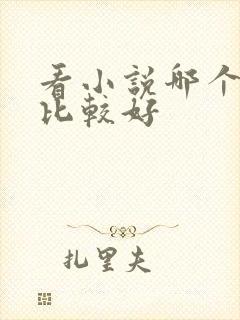 看小説哪个
比較好
扎里夫